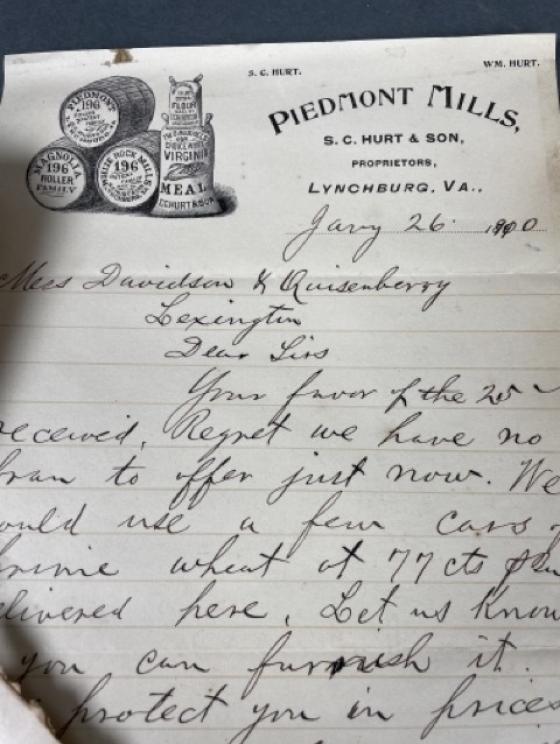 S. C. HURT.
WM. HURT.
PIEDMONT MILLS,
S. C. HURT & SON,
PROPRIETORS,
LYNCHBURG, VA.,
PIEDMONT
196
MAGNOLIA
196
ROLLER
FAMILY
WHITE ROCK MILLS
196
FLOUR
VIRGINIA
MEAL
S.C. HURT & SON
Jany 26 1900
Mess Davidson & Quisenberry
Lexington
Dear Sirs
Your favor of the 25
received. Regret we have no
bran to offer just now. We
ould use a few cars
prime wheat at 77 cts
elivered here. Let us know
you can furnish it.
protect you in prices